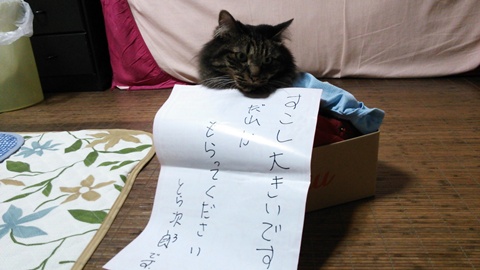 すこし大きいです
だれか
もらってください
とら次郎です